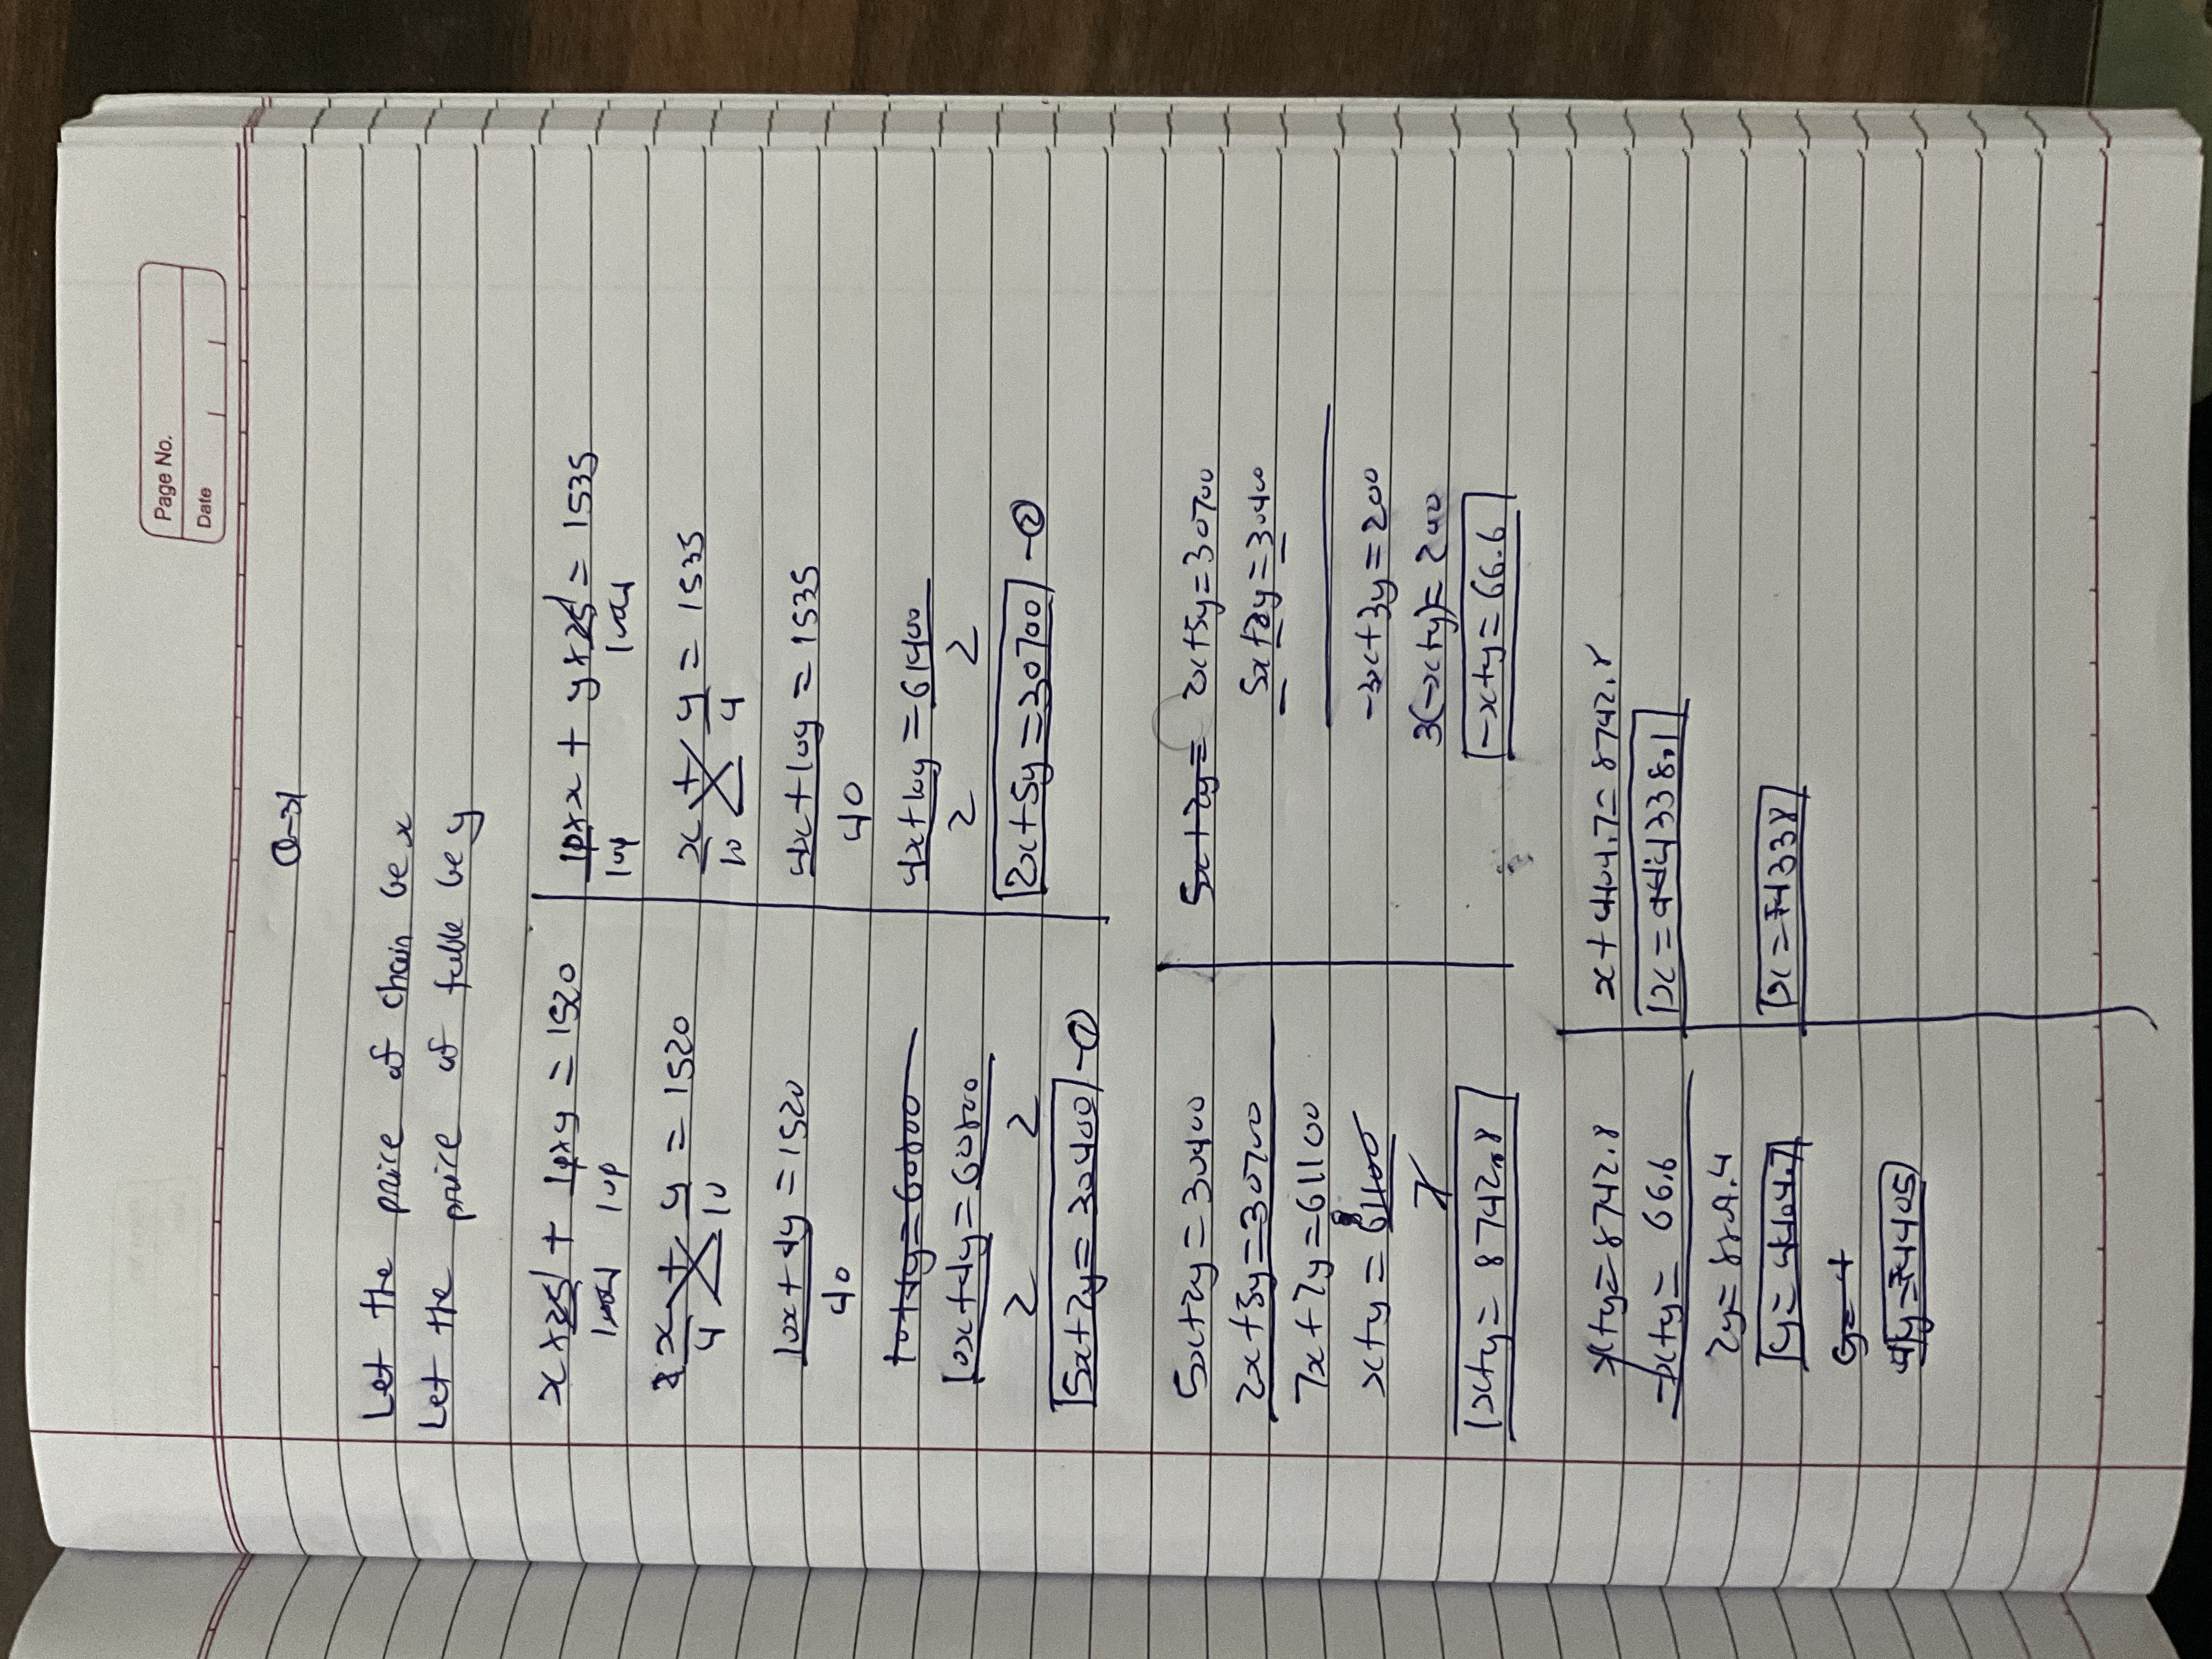 Page No.
Date
Q-31
Let the price of chair be x
Let the price of table be y
x × 25/100 + 10 × y/100 = 1520
x/4 + y/10 = 1520
10x + 4y/40 = 1520
10+4y=60800
10x+4y/2 = 60800/2
5x+2y = 30400 -①
10 × x/100 + y × 25/100 = 1535
x/10 + y/4 = 1535
4x + 10y/40 = 1535
4x+10y/2 = 61400/2
2x+5y=30700 -②
5x+2y=30400
2x+5y=30700
7x+7y=61100
x+y = 61100/7
x+y= 8742.8
5x+2y=
2x+5y=30700
5x+2y=30400
-3x+3y=200
3(-x+y)=200
-x+y=66.6
x+y=8742.8
-x+y= 66.6
2y=8809.4
y=4404.7
y=4
y=4405
x+4404.7=8742.8
x=4338.1
x=4338